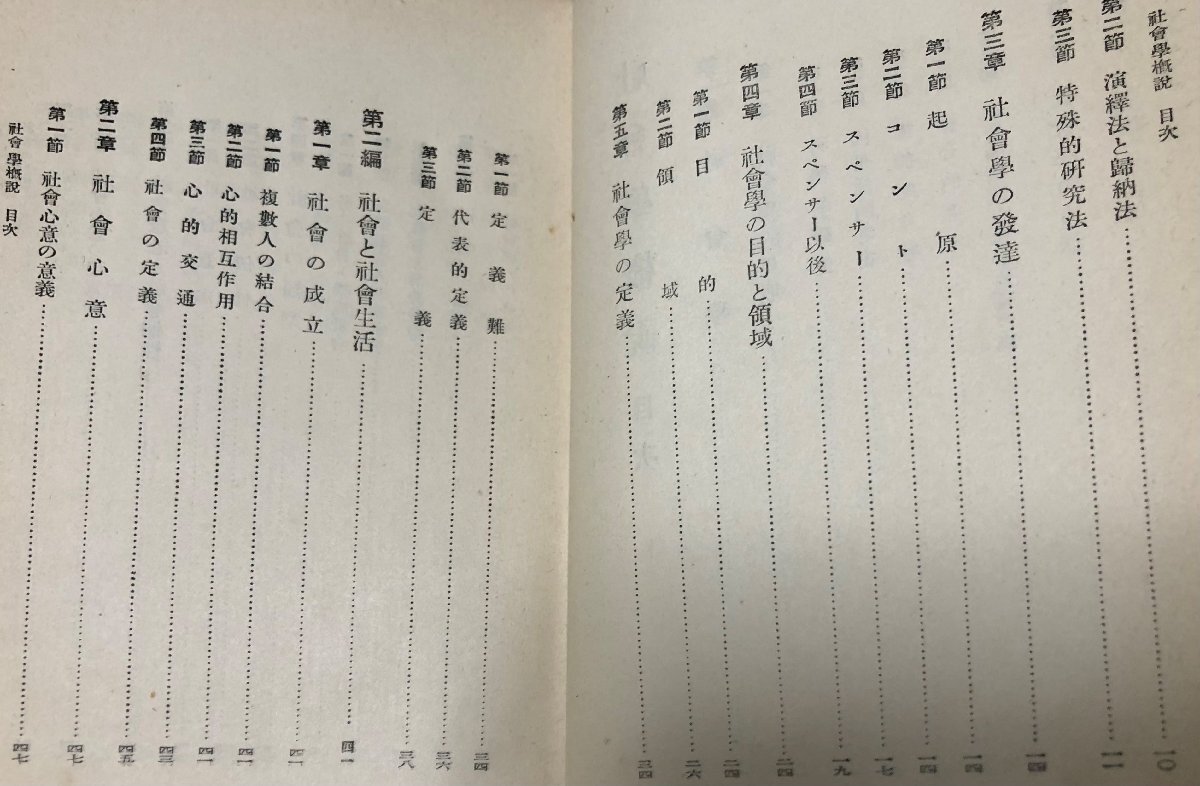 社會學概說 目次
第二節 演繹法と歸納法……一〇
第三節 特殊的研究法……一一
第三章 社會學の發達……一四
第一節 起原……一四
第二節 コント……一四
第三節 スペンサー……一七
第四節 スペンサー以後……一九
第四章 社會學の目的と領域……二四
第一節 目的……二四
第二節 領域……二六
第五章 社會學の定義……三四
第一節 定義難……三四
第二節 代表的定義……三六
第三節 定義……三八
第二編 社會と社會生活……四一
第一章 社會の成立……四一
第一節 複數人の結合……四一
第二節 心的相互作用……四一
第三節 心的交通……四三
第四節 社會の定義……四五
第二章 社會心意……四七
第一節 社會心意の意義……四七
社會學概說 目次